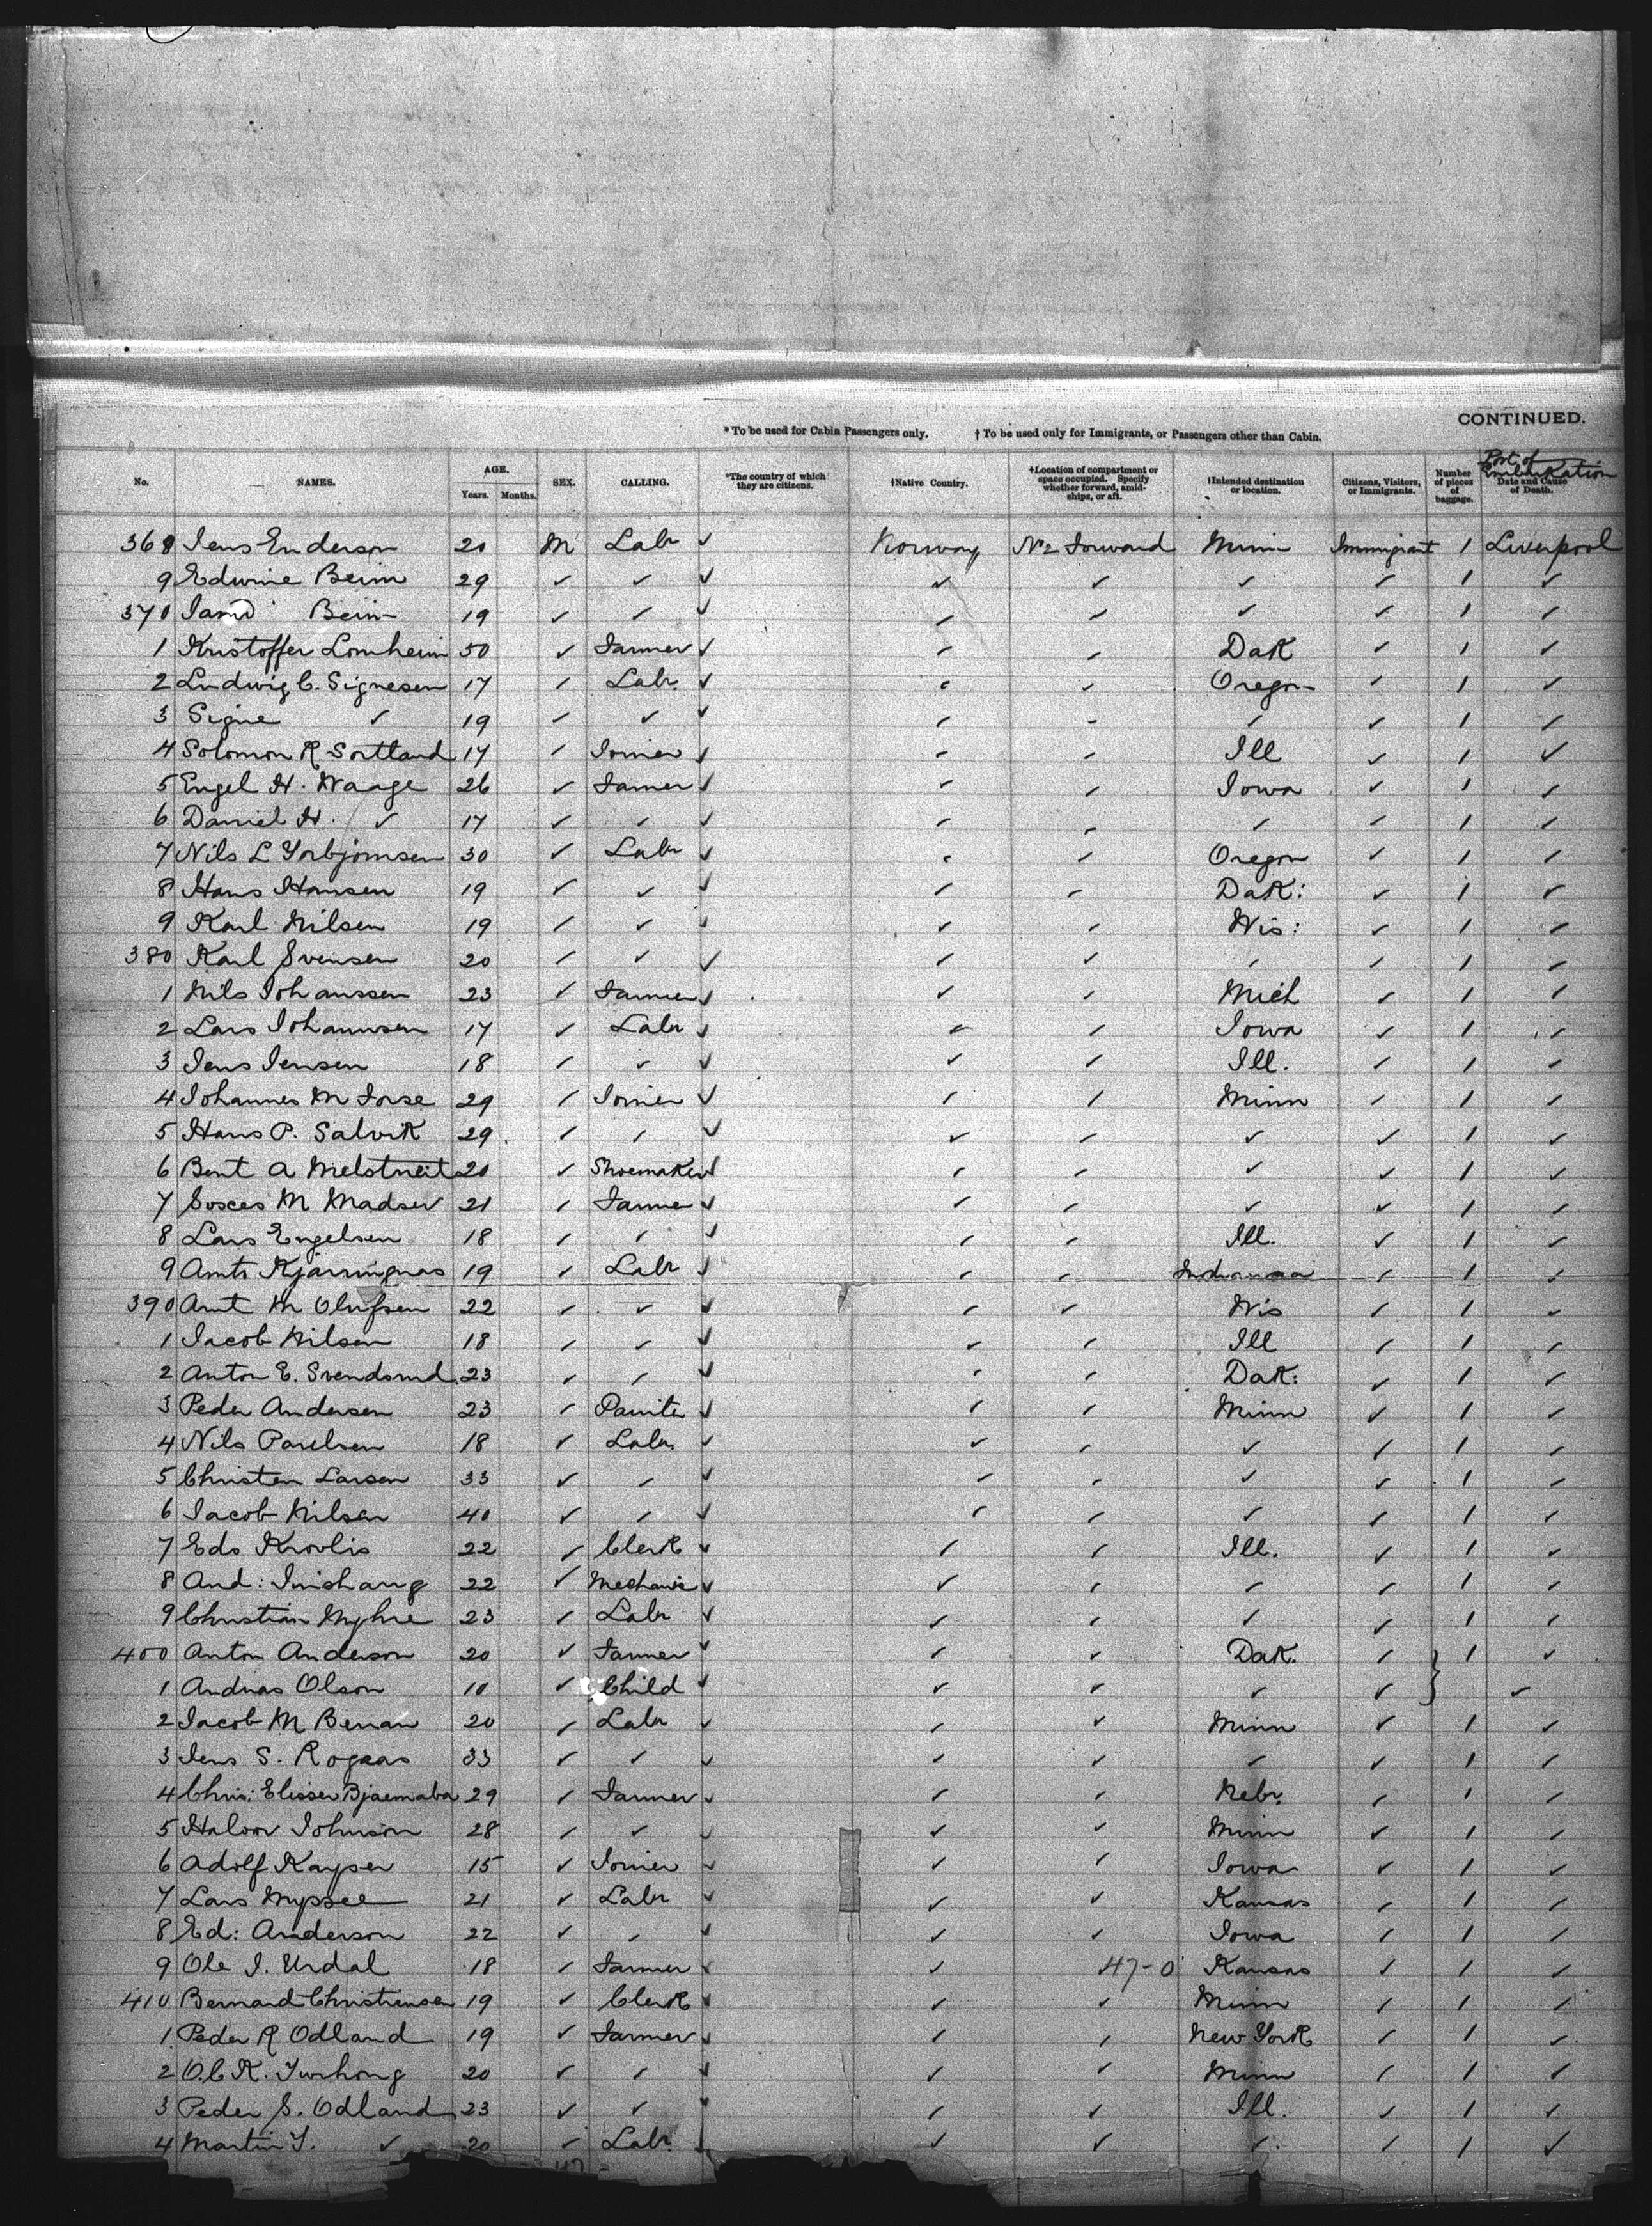 CONTINUED.
* To be used for Cabin Passengers only. † To be used only for Immigrants, or Passengers other than Cabin.
No. NAMES. AGE. Years. Months. SEX. CALLING. *The country of which they are citizens. †Native Country. †Location of compartment or space occupied. Specify whether forward, amidships, or aft. †Intended destination or location. Citizens, Visitors, or Immigrants. Number of pieces of baggage. Port of Embarkation Date and Cause of Death.
368 Jens Enderson 20 M Labr ✓ Norway No2 Forward Minn Immigrant 1 Liverpool
9 Edwine Beim 29 ✓ ✓ ✓ ✓ ✓ ✓ ✓ 1 ✓
370 Beim 19 ✓ ✓ ✓ ✓ ✓ ✓ ✓ 1 ✓
1 Kristoffer Lomheim 50 ✓ Farmer ✓ ✓ ✓ Dak ✓ 1 ✓
2 Ludwig C. Signesen 17 ✓ Labr. ✓ ✓ ✓ Oregon ✓ 1 ✓
3 Signe ✓ 19 ✓ ✓ ✓ ✓ ✓ ✓ ✓ 1 ✓
4 Solomon R Sortland 17 ✓ Joiner ✓ ✓ ✓ Ill ✓ 1 ✓
5 Engel H. Waage 26 ✓ Farmer ✓ ✓ ✓ Iowa ✓ 1 ✓
6 Daniel H. ✓ 17 ✓ ✓ ✓ ✓ ✓ ✓ ✓ 1 ✓
7 Nils L Torbjornsen 30 ✓ Labr ✓ ✓ ✓ Oregon ✓ 1 ✓
8 Hans Hansen 19 ✓ ✓ ✓ ✓ ✓ Dak: ✓ 1 ✓
9 Karl Nilsen 19 ✓ ✓ ✓ ✓ ✓ Wis: ✓ 1 ✓
380 Karl Svensen 20 ✓ ✓ ✓ ✓ ✓ ✓ ✓ 1 ✓
1 Nils Johanssen 23 ✓ Farmer ✓ ✓ ✓ Mich ✓ 1 ✓
2 Lars Johannsen 17 ✓ Labr ✓ ✓ ✓ Iowa ✓ 1 ✓
3 Jens Jensen 18 ✓ ✓ ✓ ✓ ✓ Ill. ✓ 1 ✓
4 Johannes M Forse 29 ✓ Joiner ✓ ✓ ✓ Minn ✓ 1 ✓
5 Hans P. Salvik 29 ✓ ✓ ✓ ✓ ✓ ✓ ✓ 1 ✓
6 Bent A Melstveit 20 ✓ Shoemaker ✓ ✓ ✓ ✓ ✓ 1 ✓
7 M Madsen 21 ✓ Farmer ✓ ✓ ✓ ✓ ✓ 1 ✓
8 Lars Engelsen 18 ✓ ✓ ✓ ✓ ✓ Ill. ✓ 1 ✓
9 Kjarringnas 19 ✓ Labr ✓ ✓ ✓ Indianaa ✓ 1 ✓
390 Arnt M Olufsen 22 ✓ ✓ ✓ ✓ ✓ Wis ✓ 1 ✓
1 Jacob Nilsen 18 ✓ ✓ ✓ ✓ ✓ Ill ✓ 1 ✓
2 Anton E. Svendsrud 23 ✓ ✓ ✓ ✓ Dak: ✓ 1 ✓
3 Peder Andersen 23 ✓ Painter ✓ ✓ ✓ Minn ✓ 1 ✓
4 Nils Paulsen 18 ✓ Labr. ✓ ✓ ✓ ✓ ✓ 1 ✓
5 Christen Larsen 33 ✓ ✓ ✓ ✓ ✓ ✓ ✓ 1 ✓
6 Jacob Nilsen 40 ✓ ✓ ✓ ✓ ✓ ✓ ✓ 1 ✓
7 Edo 22 ✓ Clerk ✓ ✓ ✓ Ill. ✓ 1 ✓
8 And: 22 ✓ Mechanic ✓ ✓ ✓ ✓ ✓ 1 ✓
9 Christian Myhre 23 ✓ Labr ✓ ✓ ✓ ✓ ✓ 1 ✓
400 Anton Anderson 20 ✓ Farmer ✓ ✓ ✓ Dak. ✓ 1 ✓
1 Andrias Olson 10 ✓ Child ✓ ✓ ✓ ✓ ✓ ✓
2 Jacob M Benan 20 ✓ Labr ✓ ✓ ✓ Minn ✓ 1 ✓
3 Jens S. Rogaas 33 ✓ ✓ ✓ ✓ ✓ ✓ ✓ 1 ✓
4 Chris: Elisser 29 ✓ Farmer ✓ ✓ ✓ Nebr. ✓ 1 ✓
5 Halvor Johnson 28 ✓ ✓ ✓ ✓ ✓ Minn ✓ 1 ✓
6 Adolf Kayser 15 ✓ Joiner ✓ ✓ ✓ Iowa ✓ 1 ✓
7 Lars 21 ✓ Labr ✓ ✓ ✓ Kansas ✓ 1 ✓
8 Ed: Anderson 22 ✓ ✓ ✓ ✓ ✓ Iowa ✓ 1 ✓
9 Ole J. Urdal 18 ✓ Farmer ✓ ✓ 47-0 Kansas ✓ 1 ✓
410 Bernard Christiensen 19 ✓ Clerk ✓ ✓ ✓ Minn ✓ 1 ✓
1 Peder R Odland 19 ✓ Farmer ✓ ✓ ✓ New York ✓ 1 ✓
2 O.C K. 20 ✓ ✓ ✓ ✓ ✓ Minn ✓ 1 ✓
3 Peder S. Odland 23 ✓ ✓ ✓ ✓ ✓ Ill. ✓ 1 ✓
4 Martin T. ✓ 20 ✓ Labr. ✓ ✓ ✓ ✓ ✓ 1 ✓